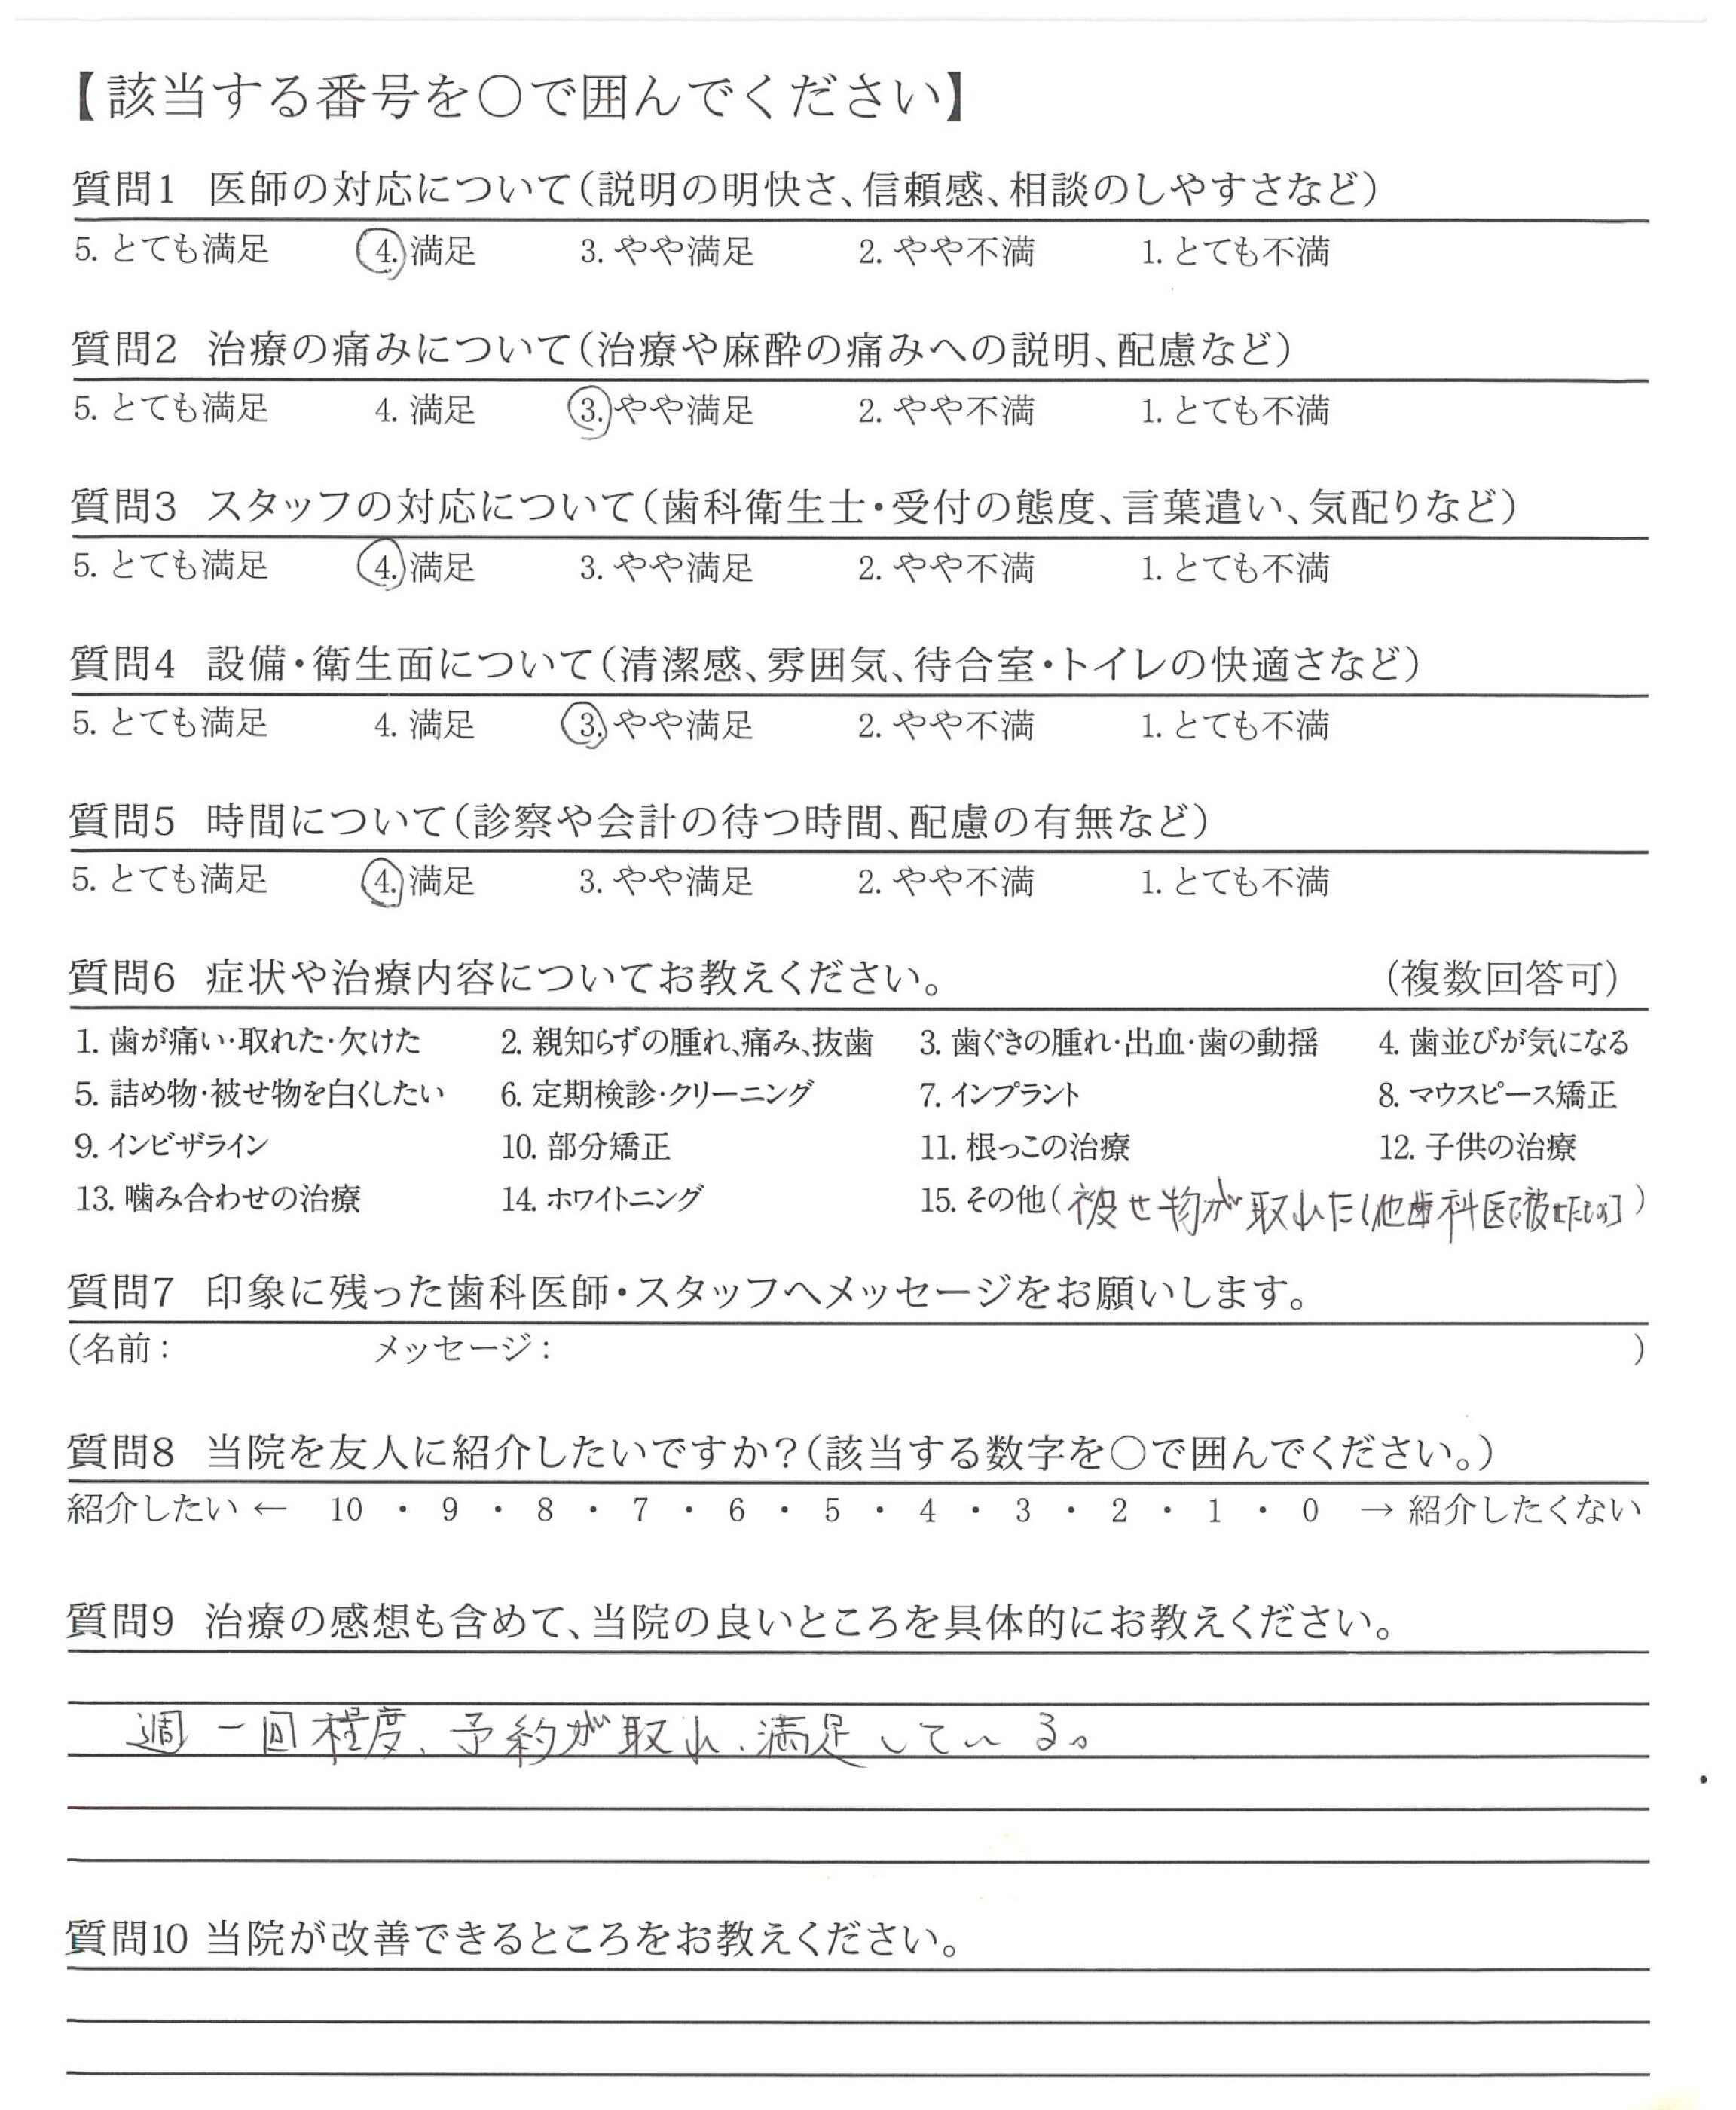 【該当する番号を〇で囲んでください】
質問1 医師の対応について(説明の明快さ、信頼感、相談のしやすさなど)
5. とても満足 4. 満足 3. やや満足 2. やや不満 1. とても不満
質問2 治療の痛みについて(治療や麻酔の痛みへの説明、配慮など)
5. とても満足 4. 満足 3. やや満足 2. やや不満 1. とても不満
質問3 スタッフの対応について(歯科衛生士・受付の態度、言葉遣い、気配りなど)
5. とても満足 4. 満足 3. やや満足 2. やや不満 1. とても不満
質問4 設備・衛生面について(清潔感、雰囲気、待合室・トイレの快適さなど)
5. とても満足 4. 満足 3. やや満足 2. やや不満 1. とても不満
質問5 時間について(診察や会計の待つ時間、配慮の有無など)
5. とても満足 4. 満足 3. やや満足 2. やや不満 1. とても不満
質問6 症状や治療内容についてお教えください。 (複数回答可)
1. 歯が痛い・取れた・欠けた 2. 親知らずの腫れ、痛み、抜歯 3. 歯ぐきの腫れ・出血・歯の動揺 4. 歯並びが気になる
5. 詰め物・被せ物を白くしたい 6. 定期検診・クリーニング 7. インプラント 8. マウスピース矯正
9. インビザライン 10. 部分矯正 11. 根っこの治療 12. 子供の治療
13. 噛み合わせの治療 14. ホワイトニング 15. その他(被せ物が取れた(他歯科医で被せたもの))
質問7 印象に残った歯科医師・スタッフへメッセージをお願いします。
(名前: メッセージ: )
質問8 当院を友人に紹介したいですか?(該当する数字を〇で囲んでください。)
紹介したい ← 10 ・ 9 ・ 8 ・ 7 ・ 6 ・ 5 ・ 4 ・ 3 ・ 2 ・ 1 ・ 0 → 紹介したくない
質問9 治療の感想も含めて、当院の良いところを具体的にお教えください。
週一回程度、予約が取れ、満足している。
質問10 当院が改善できるところをお教えください。